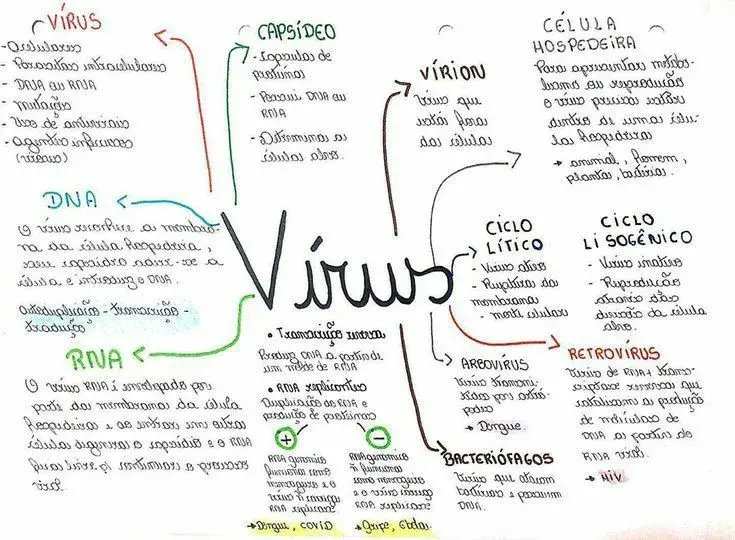 VÍRUS
- Acelulares
- Parasitas intracelulares
- DNA ou RNA
- Mutação
- Uso de antivirais
- Agentes infecciosos
CAPSÍDEO
- Cápsulas de
proteínas
- Possui DNA ou
RNA
- Determina a
célula alvo.
VÍRION
Vírus que
está fora
das células
CÉLULA
HOSPEDEIRA
Para apresentar metabo-
lismo ou reprodução
o vírus precisa estar
dentro de uma célu-
la hospedeira
→ animal, homem,
planta, bactéria.
DNA
O vírus reconhece a membra-
na da célula hospedeira,
seu capsídeo adere-se a
célula e introduz o DNA.
Autoduplicação - transcrição -
tradução
Vírus
CICLO
LÍTICO
- Vírus ativo
- Ruptura da
membrana
- morte celular
CICLO
LISOGÊNICO
- Vírus inativo
- Reprodução
através da
divisão da célula
alvo.
RNA
O vírus RNA é envelopado por
parte da membrana da célula
hospedeira e ao entrar em outra
célula degenera o capsídeo e o RNA
fica livre p/ continuar o processo
viral.
• Transcrição reversa
Produz DNA a partir de
um molde de RNA
• RNA replicantes
Duplicação do RNA e
produção de proteínas
+
RNA genômico
funciona como
mensageiro e o
vírus ñ carrega
RNA replicase
→ Dengue, COVID
-
RNA genômico
ñ funciona
como mensageiro
e o vírus carrega
RNA replicase
→ Gripe, Ebola.
ARBOVÍRUS
Vírus transmi-
tidos por artró-
podes
→ Dengue.
BACTERIÓFAGOS
Vírus que atacam
bactérias e possuem
DNA.
RETROVÍRUS
Vírus de RNA+ trans-
criptase reversa que
catalisam a produção
de moléculas de
DNA a partir do
RNA viral.
→ HIV